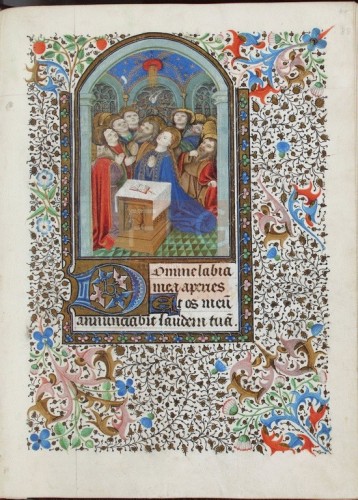 Domine labia
mea aperies
Et os meū
annunciabit laudem tuā.